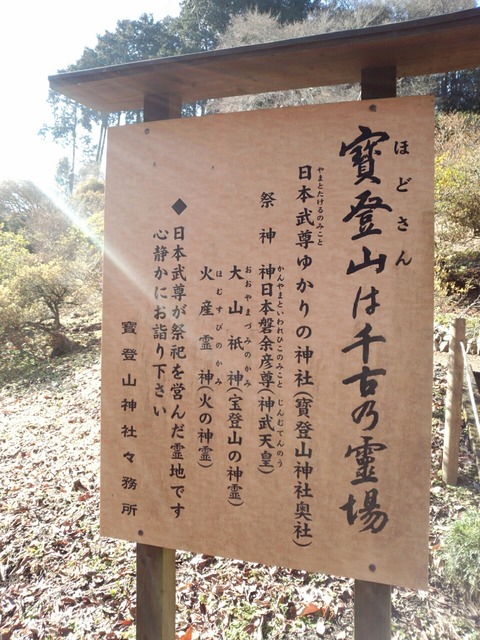 寳登山は千古乃霊場
ほどさん
日本武尊ゆかりの神社(寳登山神社奥社)
やまとたけるのみこと
祭神 神日本磐余彦尊(神武天皇)
かんやまといわれひこのみこと じんむてんのう
大山祇神(宝登山の神霊)
おおやまづみのかみ
火産霊神(火の神霊)
ほむすびのかみ
◆日本武尊が祭祀を営んだ霊地です
心静かにお詣り下さい
寳登山神社々務所